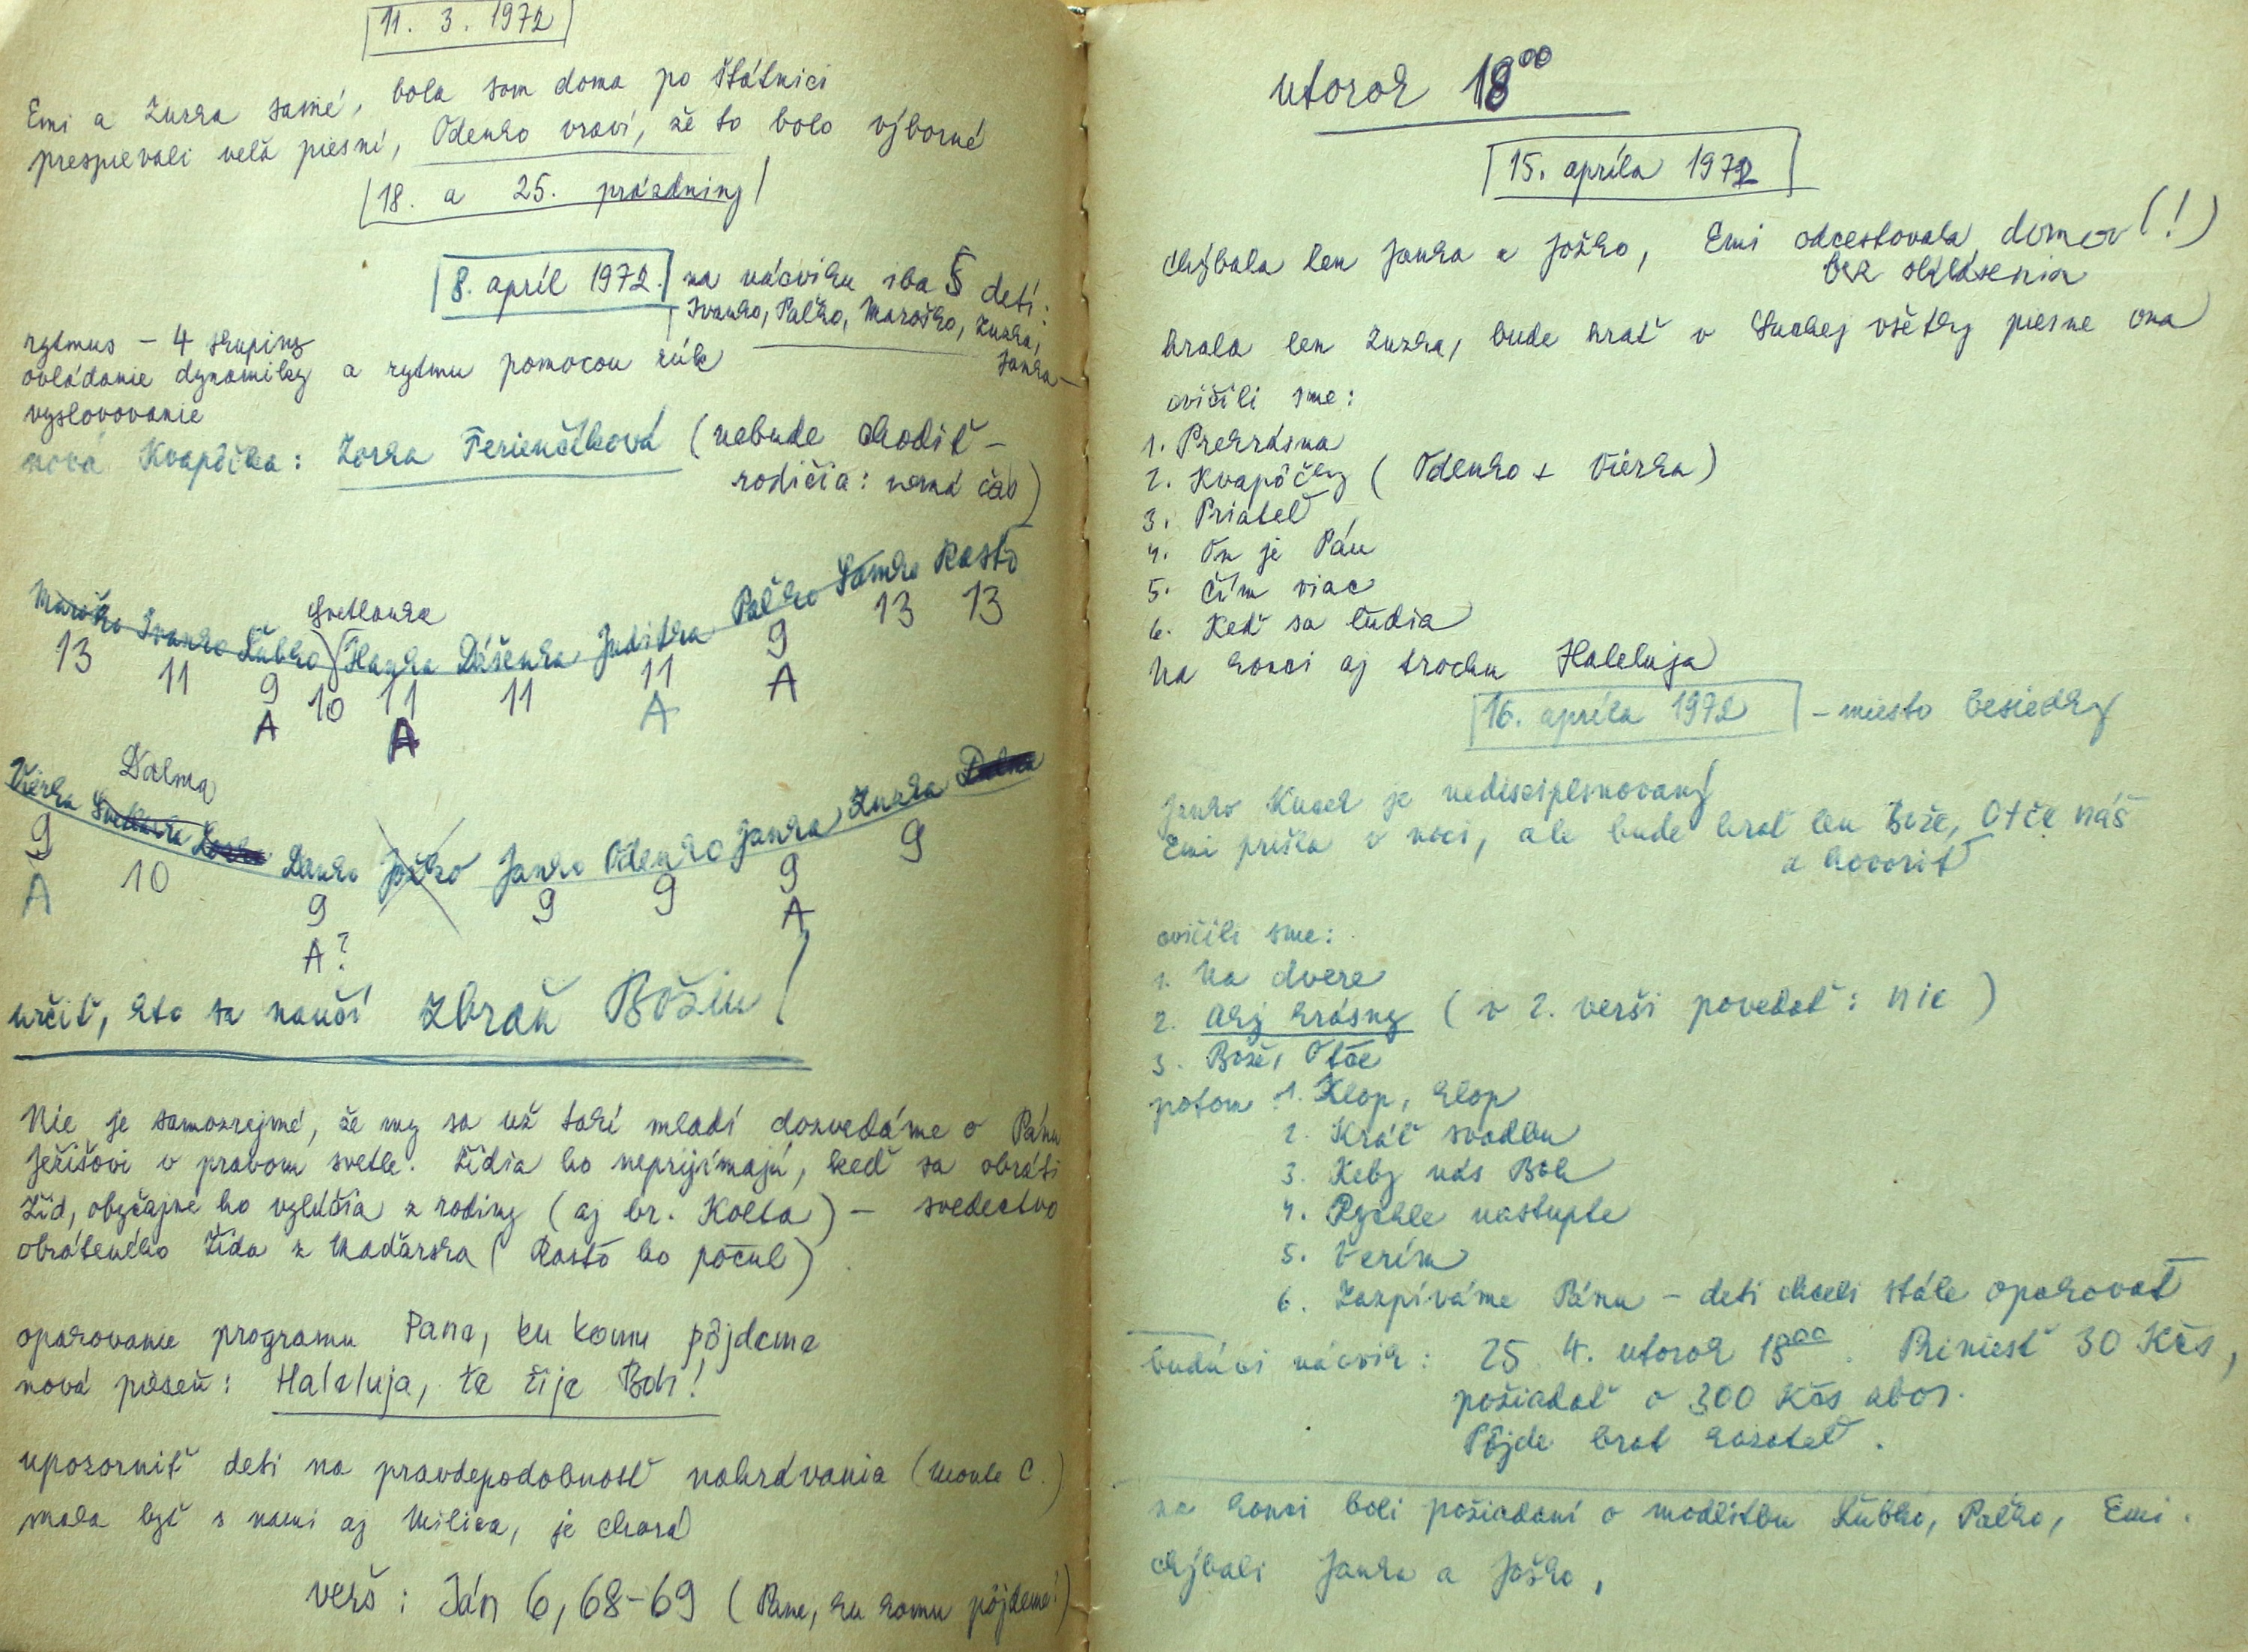 11. 3. 1972
Emi a Zuzka samé, bola som doma po štátnici
prespievali veľa piesní, Odenko vraví, že to bolo výborné
18. a 25. prázdniny
8. apríl 1972. na nácviku iba 5 detí:
Ivanko, Paľko, Maroško, Zuzka,
Janka
rytmus - 4 skupiny
ovládanie dynamiky a rytmu pomocou rúk
vyslovovanie
nová Kvapôčka: Zorka Ferienčíková (nebude chodiť -
rodičia: nemá čas)
Maroško Ivanko Ľubko Svetlanka Hanka Dášenka Juditka Paľko Samko Rasťo
13 11 9 10 11 11 11 9 13 13
A A A A
Vierka Dalma Svetlanka Zorka Danko Joško Janko Odenko Janka Zuzka Dalma
9 10 9 9 9 9 9
A A? A
určiť, kto sa naučí Zbraň Božiu!
Nie je samozrejmé, že my sa už takí mladí dozvedáme o Pánu
Ježišovi v pravom svetle. Židia ho neprijímajú, keď sa obráti
Žid, obyčajne ho vylúčia z rodiny (aj br. Kolta) - svedectvo
obráteného Žida z Maďarska (Rasťo ho počul)
opakovanie programu Pane, ku komu pôjdeme
nová pieseň: Haleluja, že žije Boh!
upozorniť deti na pravdepodobnosť nahrávania (Monte C.)
mala byť s nami aj Milica, je chorá
verš: Ján 6, 68-69 (Pane, ku komu pôjdeme!)
utorok 18⁰⁰
15. apríla 1972
chýbala len Janka a Joško, Emi odcestovala domov (!)
bez ohlásenia
hrala len Zuzka, bude hrať v Suchej všetky piesne ona
cvičili sme:
1. Prekrásna
2. Kvapôčky (Odenko + Vierka)
3. Priateľ
4. On je Pán
5. Čím viac
6. Keď sa ľudia
Na konci aj trochu Haleluja
16. apríla 1972 - miesto besiedky
Janko Kucek je nedisciplinovaný
Emi prišla v noci, ale bude hrať len Bože, Otče náš
a hovoriť
cvičili sme:
1. Na dvere
2. Aký krásny (v 2. verši povedať: nie)
3. Bože, Otče
potom: 1. Klop, klop
2. Kráľ svadbu
3. Keby nás Boh
4. Rýchle nastupte
5. Verím
6. Zazpíváme Pánu - deti chceli stále opakovať
budúci nácvik: 25. 4. utorok 18⁰⁰. Priniesť 30 Kčs,
požiadať o 300 Kčs zbor.
Pôjde brat kazateľ.
na konci boli požiadaní o modlitbu Ľubko, Paľko, Emi.
chýbali Janka a Joško,